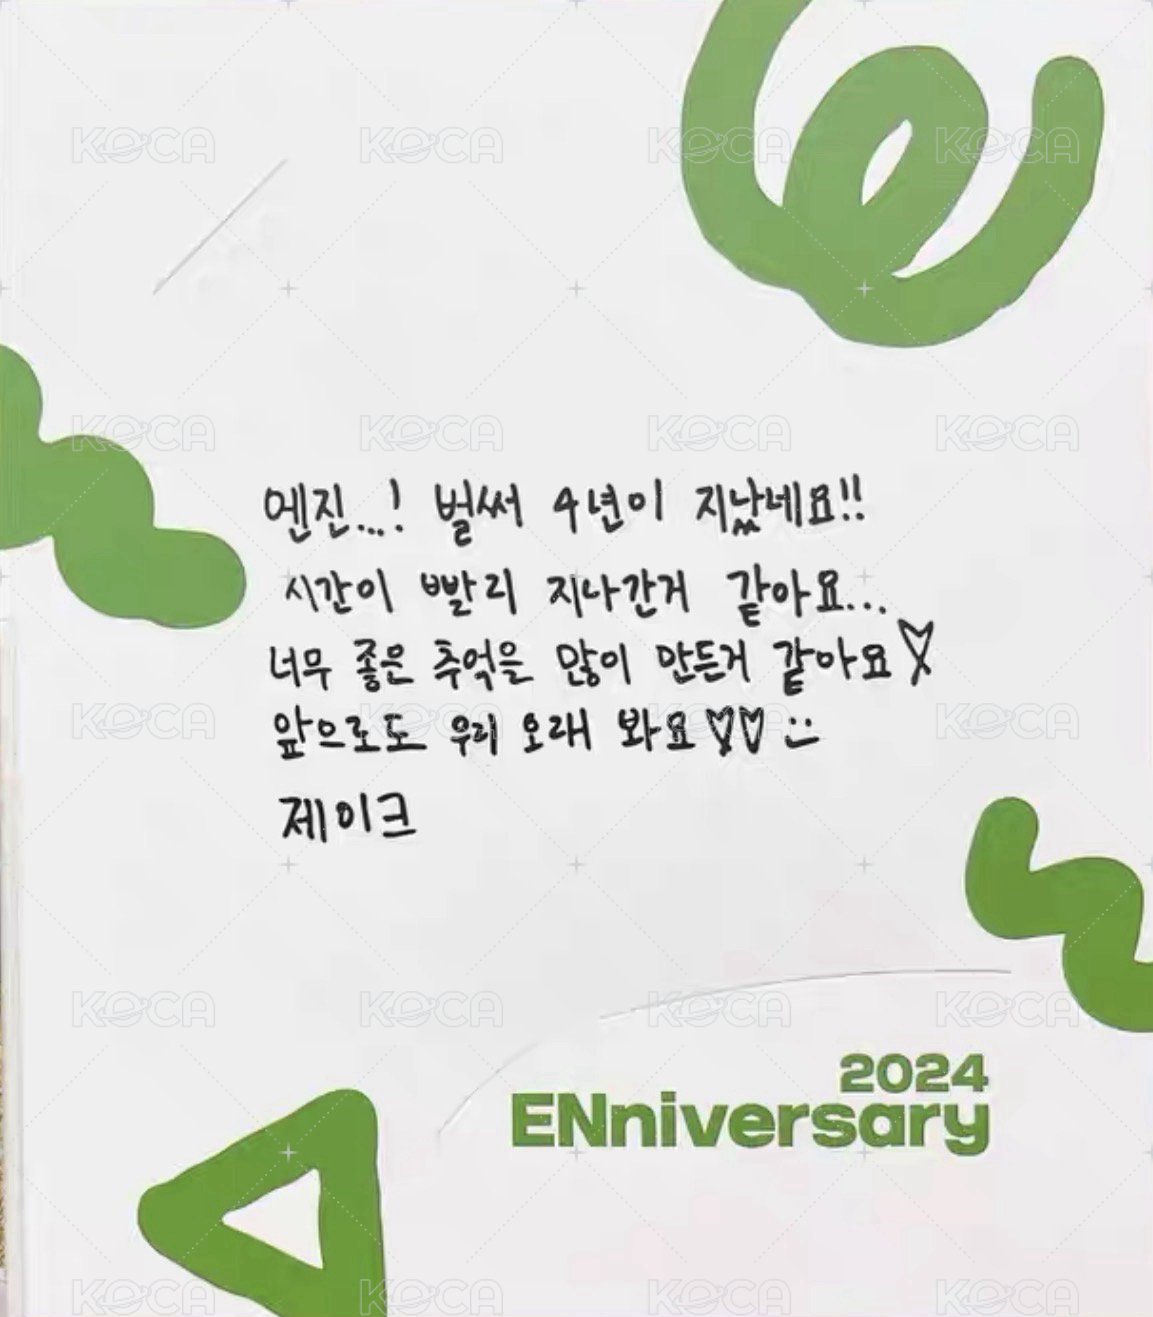 엔진...! 벌써 4년이 지났네요!!
시간이 빨리 지나간거 같아요...
너무 좋은 추억을 많이 만든거 같아요♡
앞으로도 우리 오래 봐요♡♡ :)
제이크
2024
ENniversary
KOCA KOCA KOCA KOCA
KOCA KOCA KOCA KOCA
KOCA KOCA KOCA KOCA
KOCA KOCA KOCA KOCA
KOCA KOCA KOCA KOCA